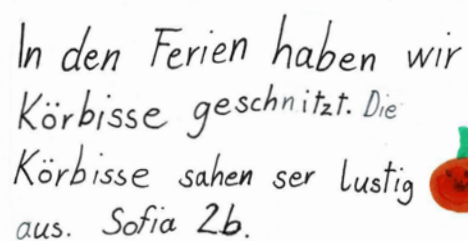 In den Ferien haben wir
Körbisse geschnitzt. Die
Körbisse sahen ser lustig
aus. Sofia 2b.